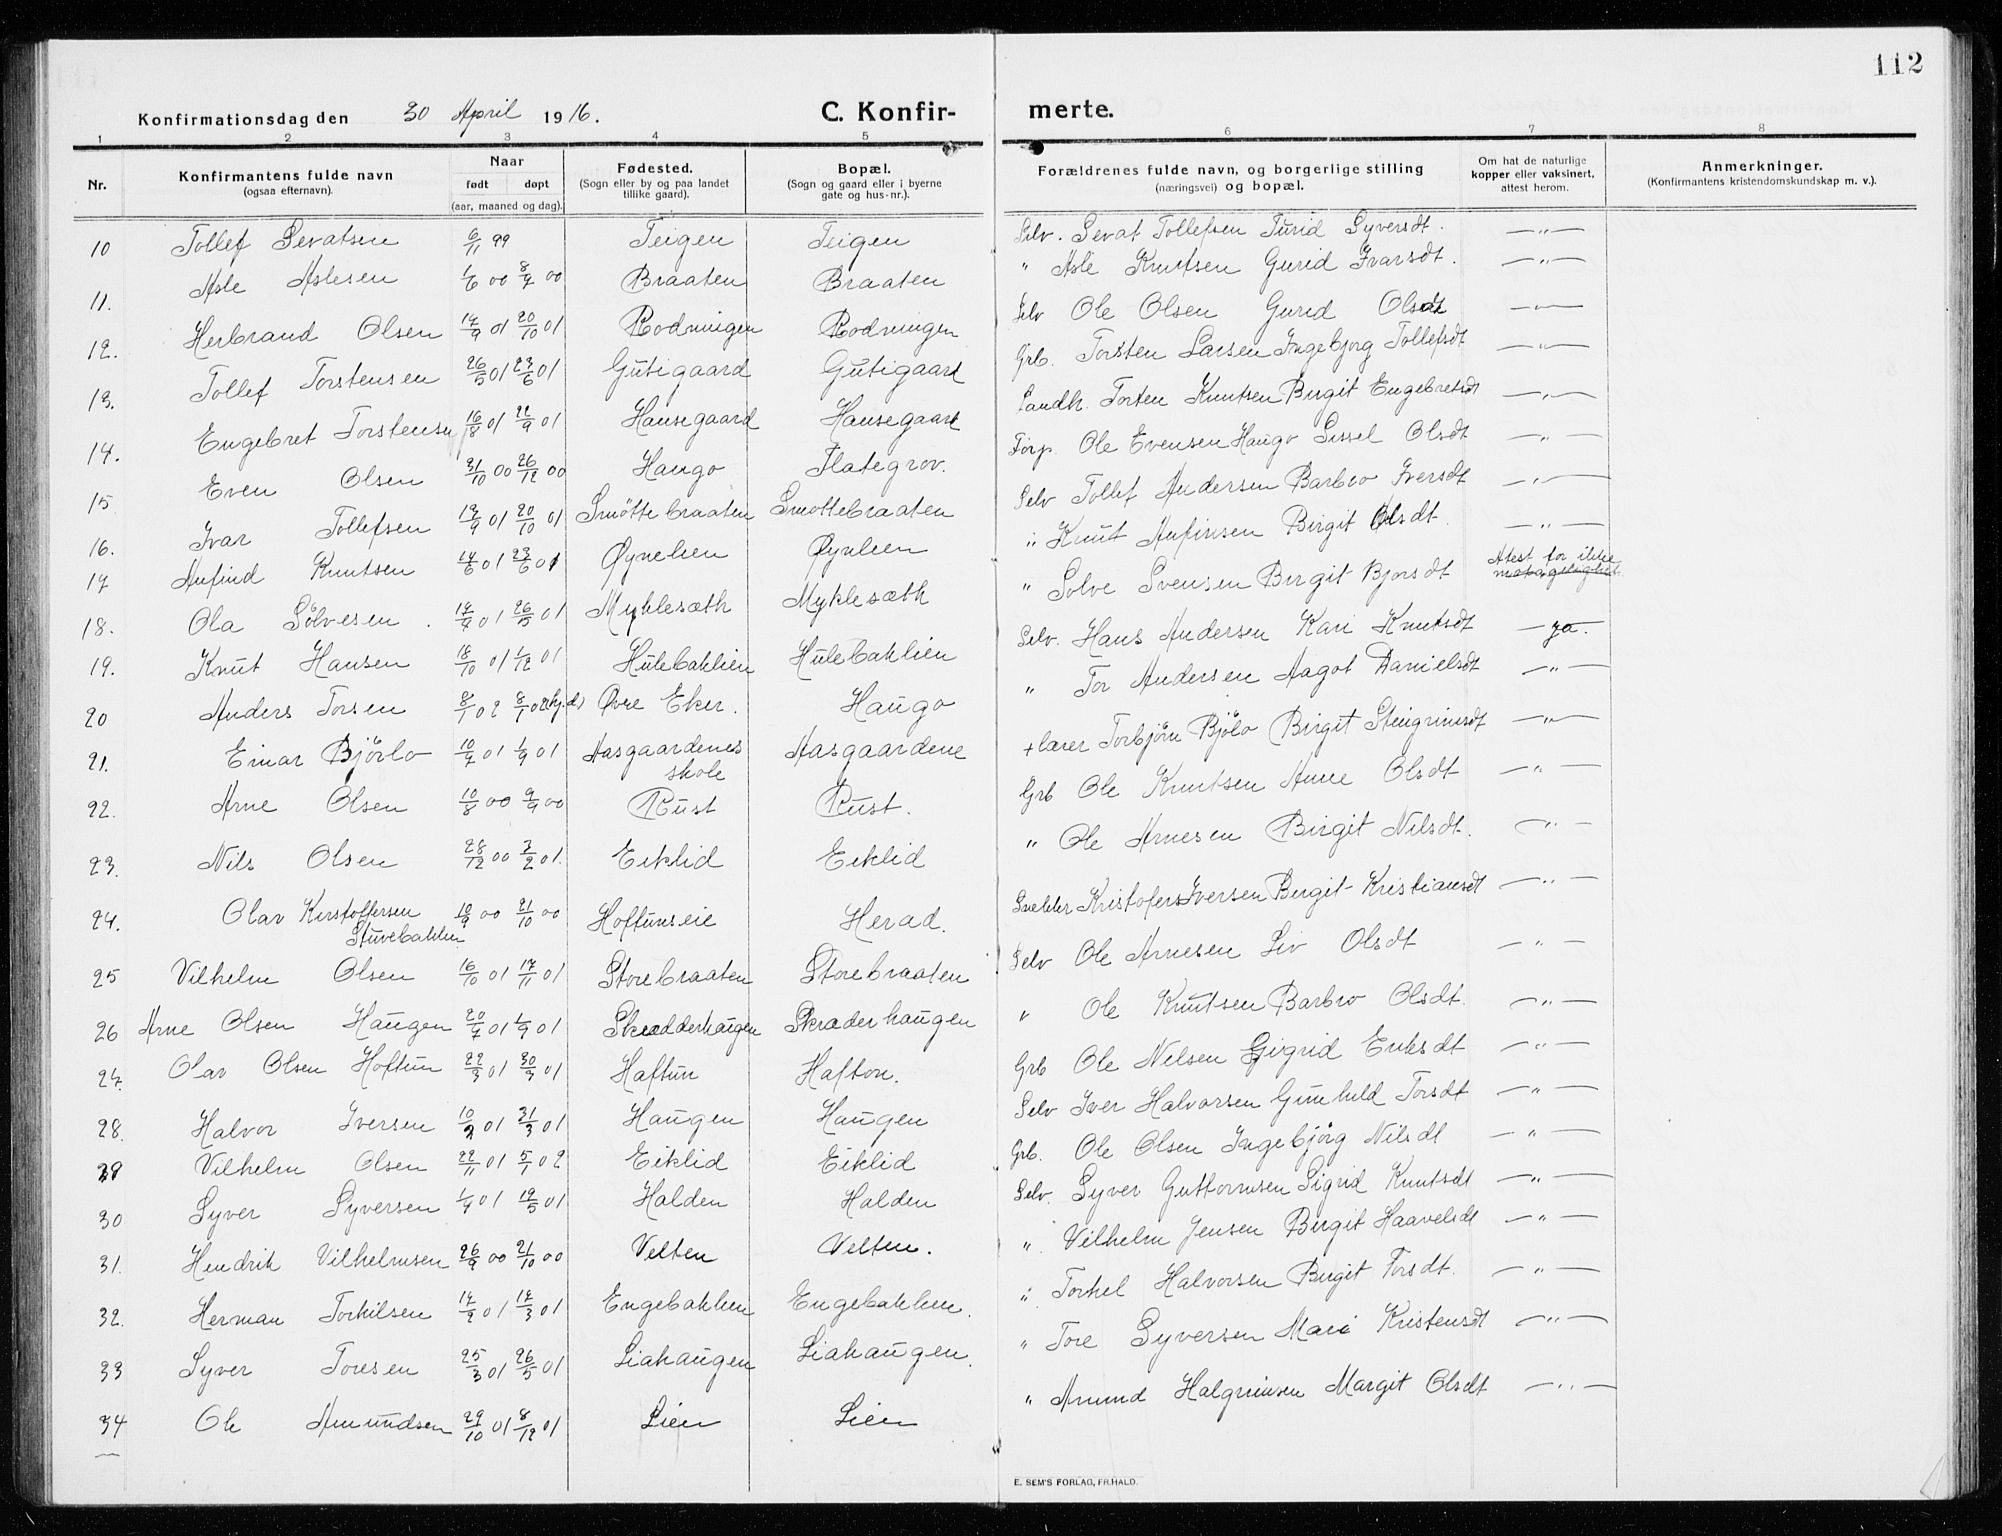 112
Konfirmationsdag den 30 April 1916. C. Konfir- merte.
1 2 3 4 5 6 7 8
Nr. Konfirmantens fulde navn (ogsaa efternavn). Naar født døpt (aar, maaned og dag). Fødested. (Sogn eller by og paa landet tillike gaard). Bopæl. (Sogn og gaard eller i byerne gate og hus-nr.). Forældrenes fulde navn, og borgerlige stilling (næringsvei) og bopæl. Om hat de naturlige kopper eller vaksinert, attest herom. Anmerkninger. (Konfirmantens kristendomskundskap m. v.).
10 Tollef Sevatsen 6/11 99 Teigen Teigen Selv. Sevat Tollefsen Turid Syversdt. —„—
11. Asle Aslesen 1/6 00 8/7 00 Braaten Braaten „ Asle Knutsen Gurid Ivarsdt. —„—
12. Herbrand Olsen 17/9 01 20/10 01 Rodningen Rodningen Selv Ole Olsen Gurid Olsdt —„—
13. Tollef Torstensen 26/5 01 23/6 01 Gutigaard Gutigaard Grb. Torsten Larsen Ingebjorg Tollefsdt —„—
14. Engebret Torstensen 16/8 01 22/9 01 Hansegaard Hansegaard Landh. Torten Knutsen Birgit Engebretsdt —„—
15 Even Olsen 31/10 00 26/12 00 Haugo Flategrov. Forp. Ole Evensen Haugo Sissel Olsdt —„—
16. Ivar Tollefsen 13/9 01 20/10 01 Smøttebraaten Smottebraaten Selv Tollef Andersen Barbro Iversdt —„—
17 Anfind Knutsen 14/6 01 23/6 01 Øynelien Øynlien „ Knut Anfinsen Birgit Olsdt. —„—
18. Ola Sölvesen. 17/4 01 26/5 01 Myklesæth Myklesæth „ Solve Svensen Birgit Bjorsdt Atest for ikke motagelighet
19. Knut Hansen 18/10 01 1/12 01 Hulebakлien Hulebaklien Selv. Hans Andersen Kari Knutsdt — ja. —
20 Anders Torsen 8/1 02 8/1 02 (hj.d) Øvre Eker. Haugo „ Tor Andersen Aagot Danielsdt —„—
21. Einar Björlo 10/7 01 1/9 01 Aasgaardenes skole Aasgaardene + lærer Torbjörn Bjölo Birgit Steingrimsdt —„—
22. Arne Olsen 10/8 00 9/9 00 Rust Rust. Grb Ole Knutsen Anne Olsdt —„—
23. Nils Olsen 28/12 00 3/2 01. Eiklid Eiklid „ Ole Arnesen Birgit Nilsdt. —„—
24. Olav Kirstoffersen Stuvebakken 10/9 00 21/10 00 Hoftunseie Herad. Snekker Kristofers Iversen Birgit Kristiansdt —„—
25 Vilhelm Olsen 16/10 01 17/11 01 Storebraaten Storebraaten Selv Ole Arnesen Liv Olsdt —„—
26 Arne Olsen Haugen 20/7 01 1/9 01 Skrædderhaugen Skraderhaugen „ Ole Knutsen Barbro Olsdt. —„—
27. Olav Olsen Hoftun 22/3 01 30/3 01 Haftun Hafton. Grb Ole Nilsen Sigrid Eriksdt —„—
28. Halvor Iversen 10/2 01 31/3 01 Haugen Haugen Selv Iver Halvorsen Gunhild Torsdt —„—
29 Vilhelm Olsen 22/11 01 5/1 02 Eiklid Eiklid Grb. Ole Olsen Ingebjörg Nilsdt —„—
30 Syver Syversen 1/4 01 19/5 01 Halden Halden Selv. Syver Guttormsen Sigrid Knutsdt —„—
31. Hendrik Vilhelmsen 26/9 00 21/10 00 Velten Velten. „ Vilhelm Jensen Birgit Haavelsdt —„—
32. Herman Torkilsen 17/2 01 17/3 01 Engebakken Engebakken. „ Torkel Halvorsen Birgit Torsdt. —„—
33 Syver Toresen 25/3 01 26/5 01 Liahaugen Liahaugen. „ Tore Syversen Mari Kristensdt —„—
34 Ole Amundsen 29/10 01 8/12 01 Lien Lien „ Amund Halgrimsen Margit Olsdt —„—
E. SEM'S FORLAG, FR.HALD.